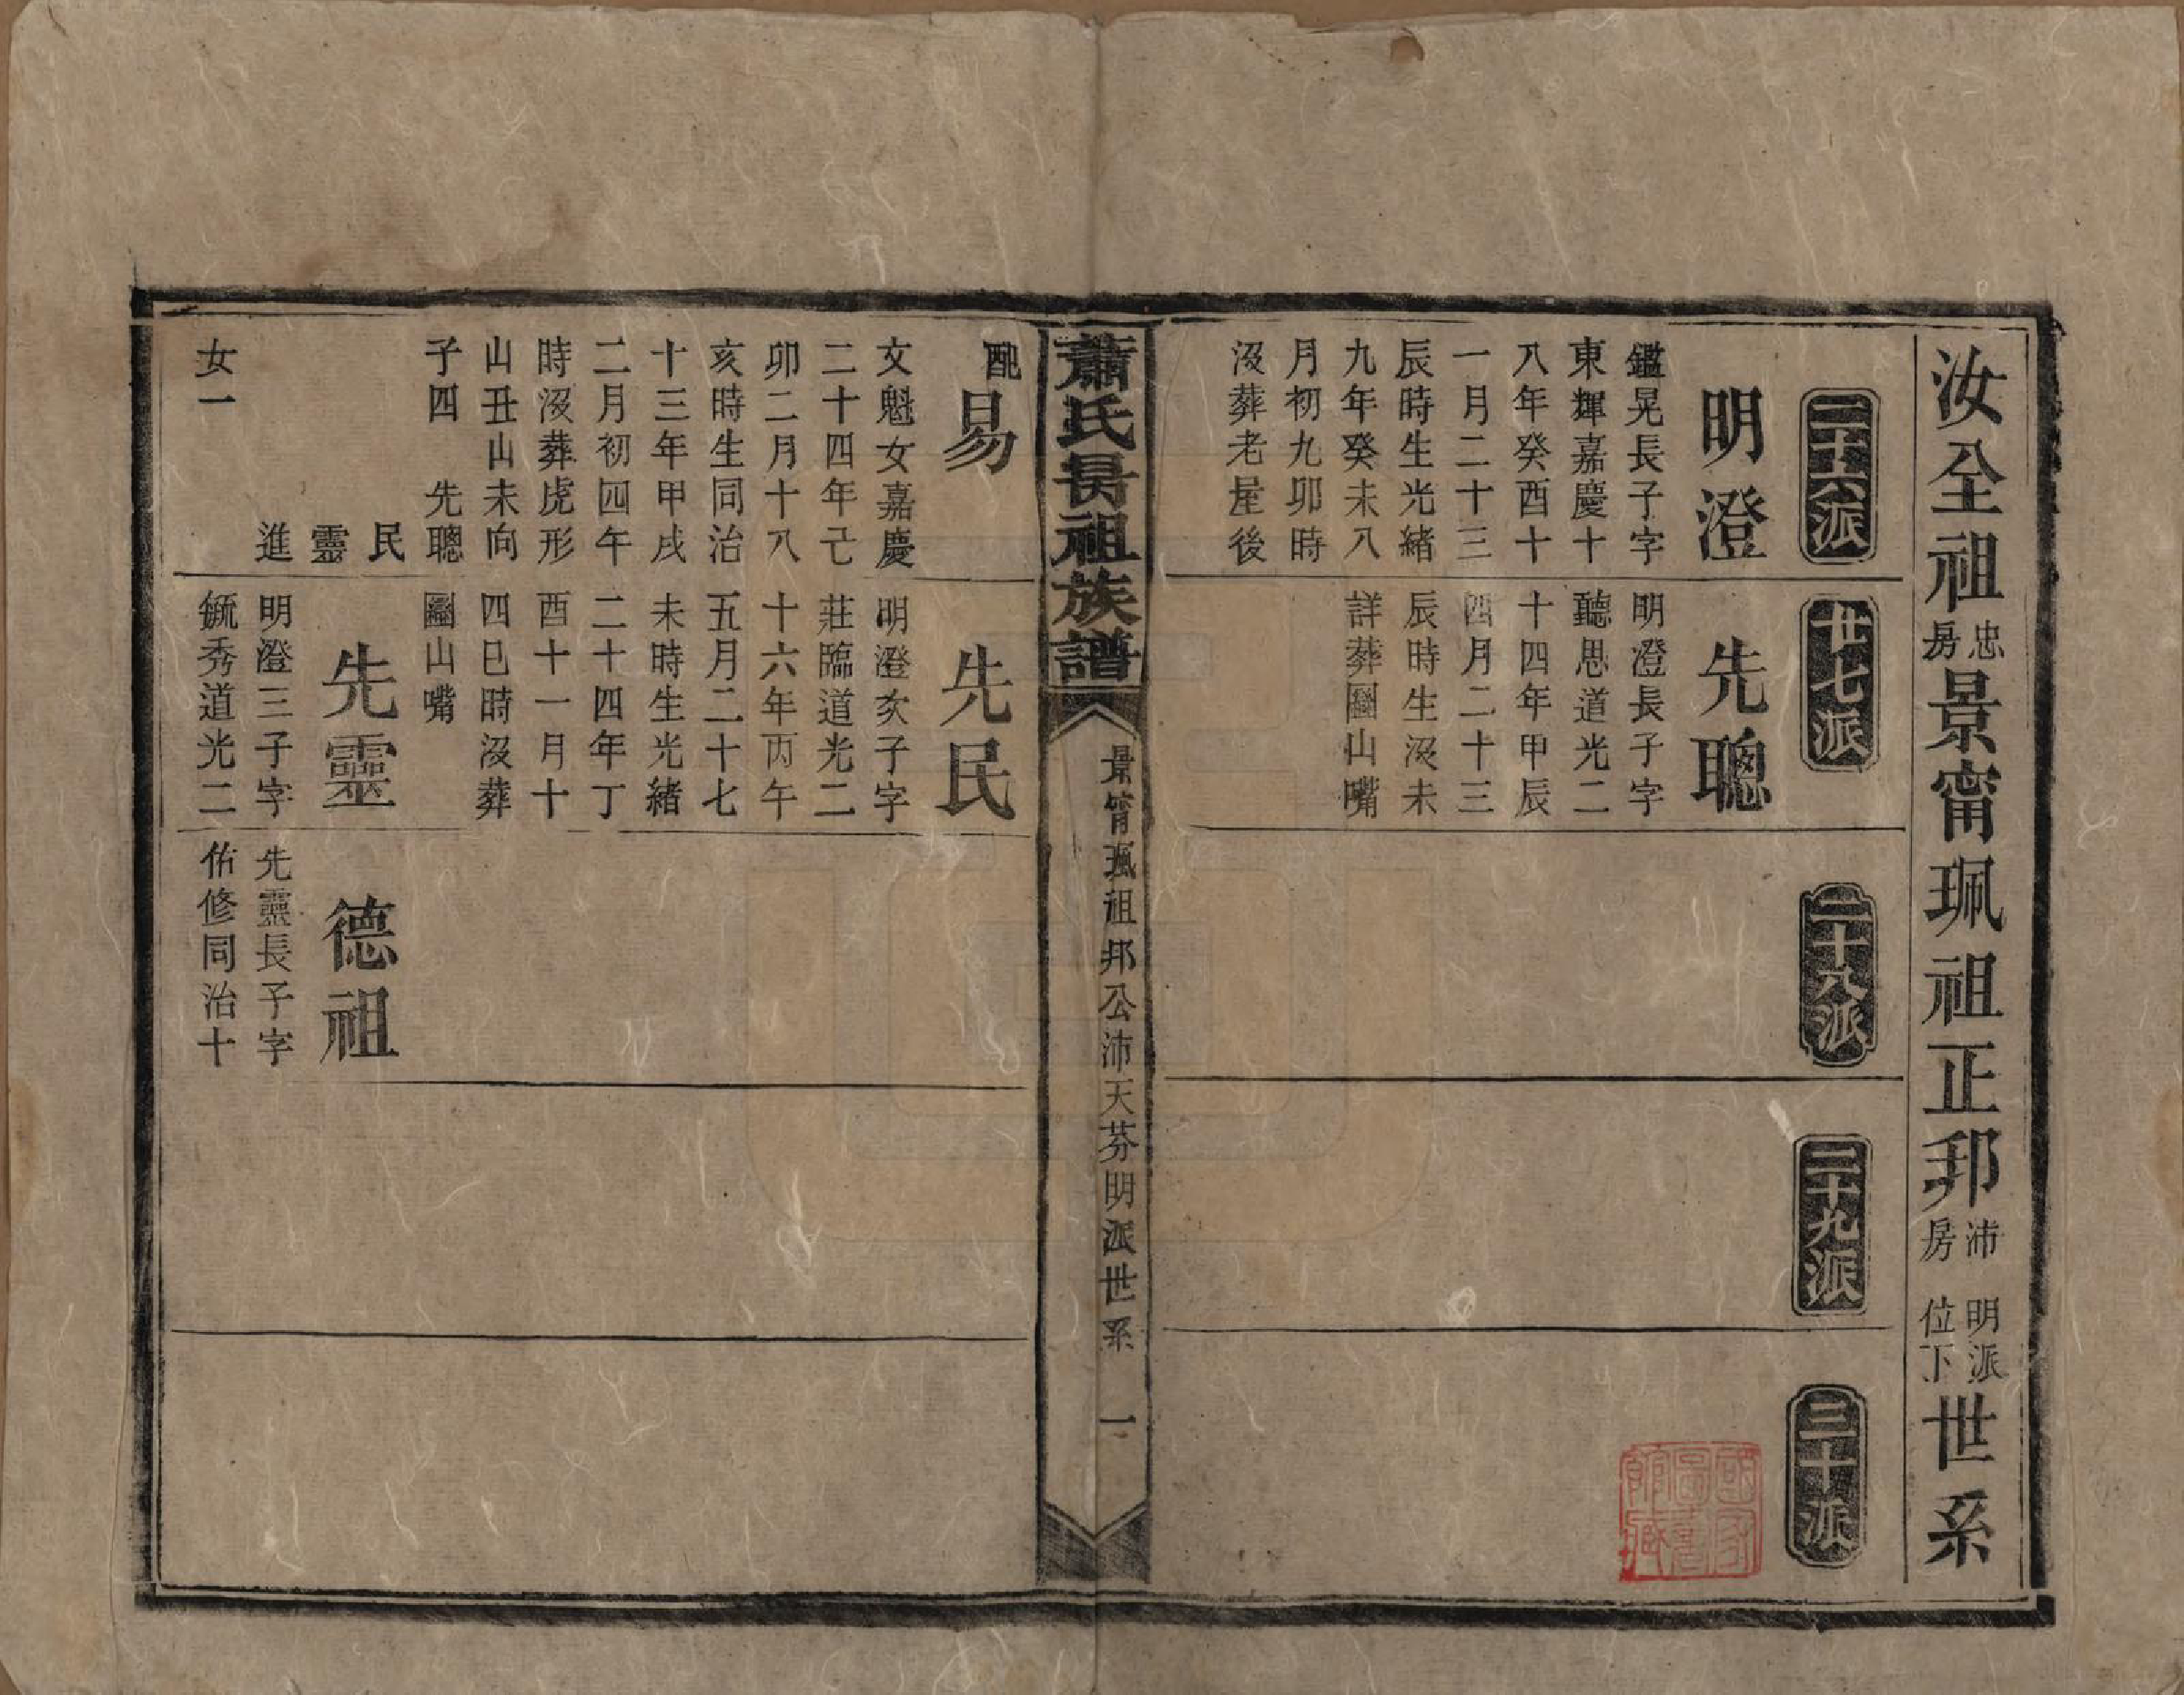 汝全祖忠房景甯珮祖正邦沛房明派位下世系
二十六派
明澄
鑑晃長子字
東輝嘉慶十
八年癸酉十
一月二十三
辰時生光緒
九年癸未八
月初九卯時
沒葬老屋後
廿七派
先聰
明澄長子字
聽思道光二
十四年甲辰
四月二十三
辰時生沒未
詳葬圝山嘴
二十八派
二十九派
三十派
蕭氏長祖族譜
景甯珮祖邦公沛天芬明派世系
一
配易
文魁女嘉慶
二十四年己
卯二月十八
亥時生同治
十三年甲戌
二月初四午
時沒葬虎形
山丑山未向
子四 先聰
民
靈
進
女一
先民
明澄次子字
莊臨道光二
十六年丙午
五月二十七
未時生光緒
二十四年丁
酉十一月十
四巳時沒葬
圝山嘴
先靈
明澄三子字
毓秀道光二
德祖
先靈長子字
佑修同治十
國家圖書館藏